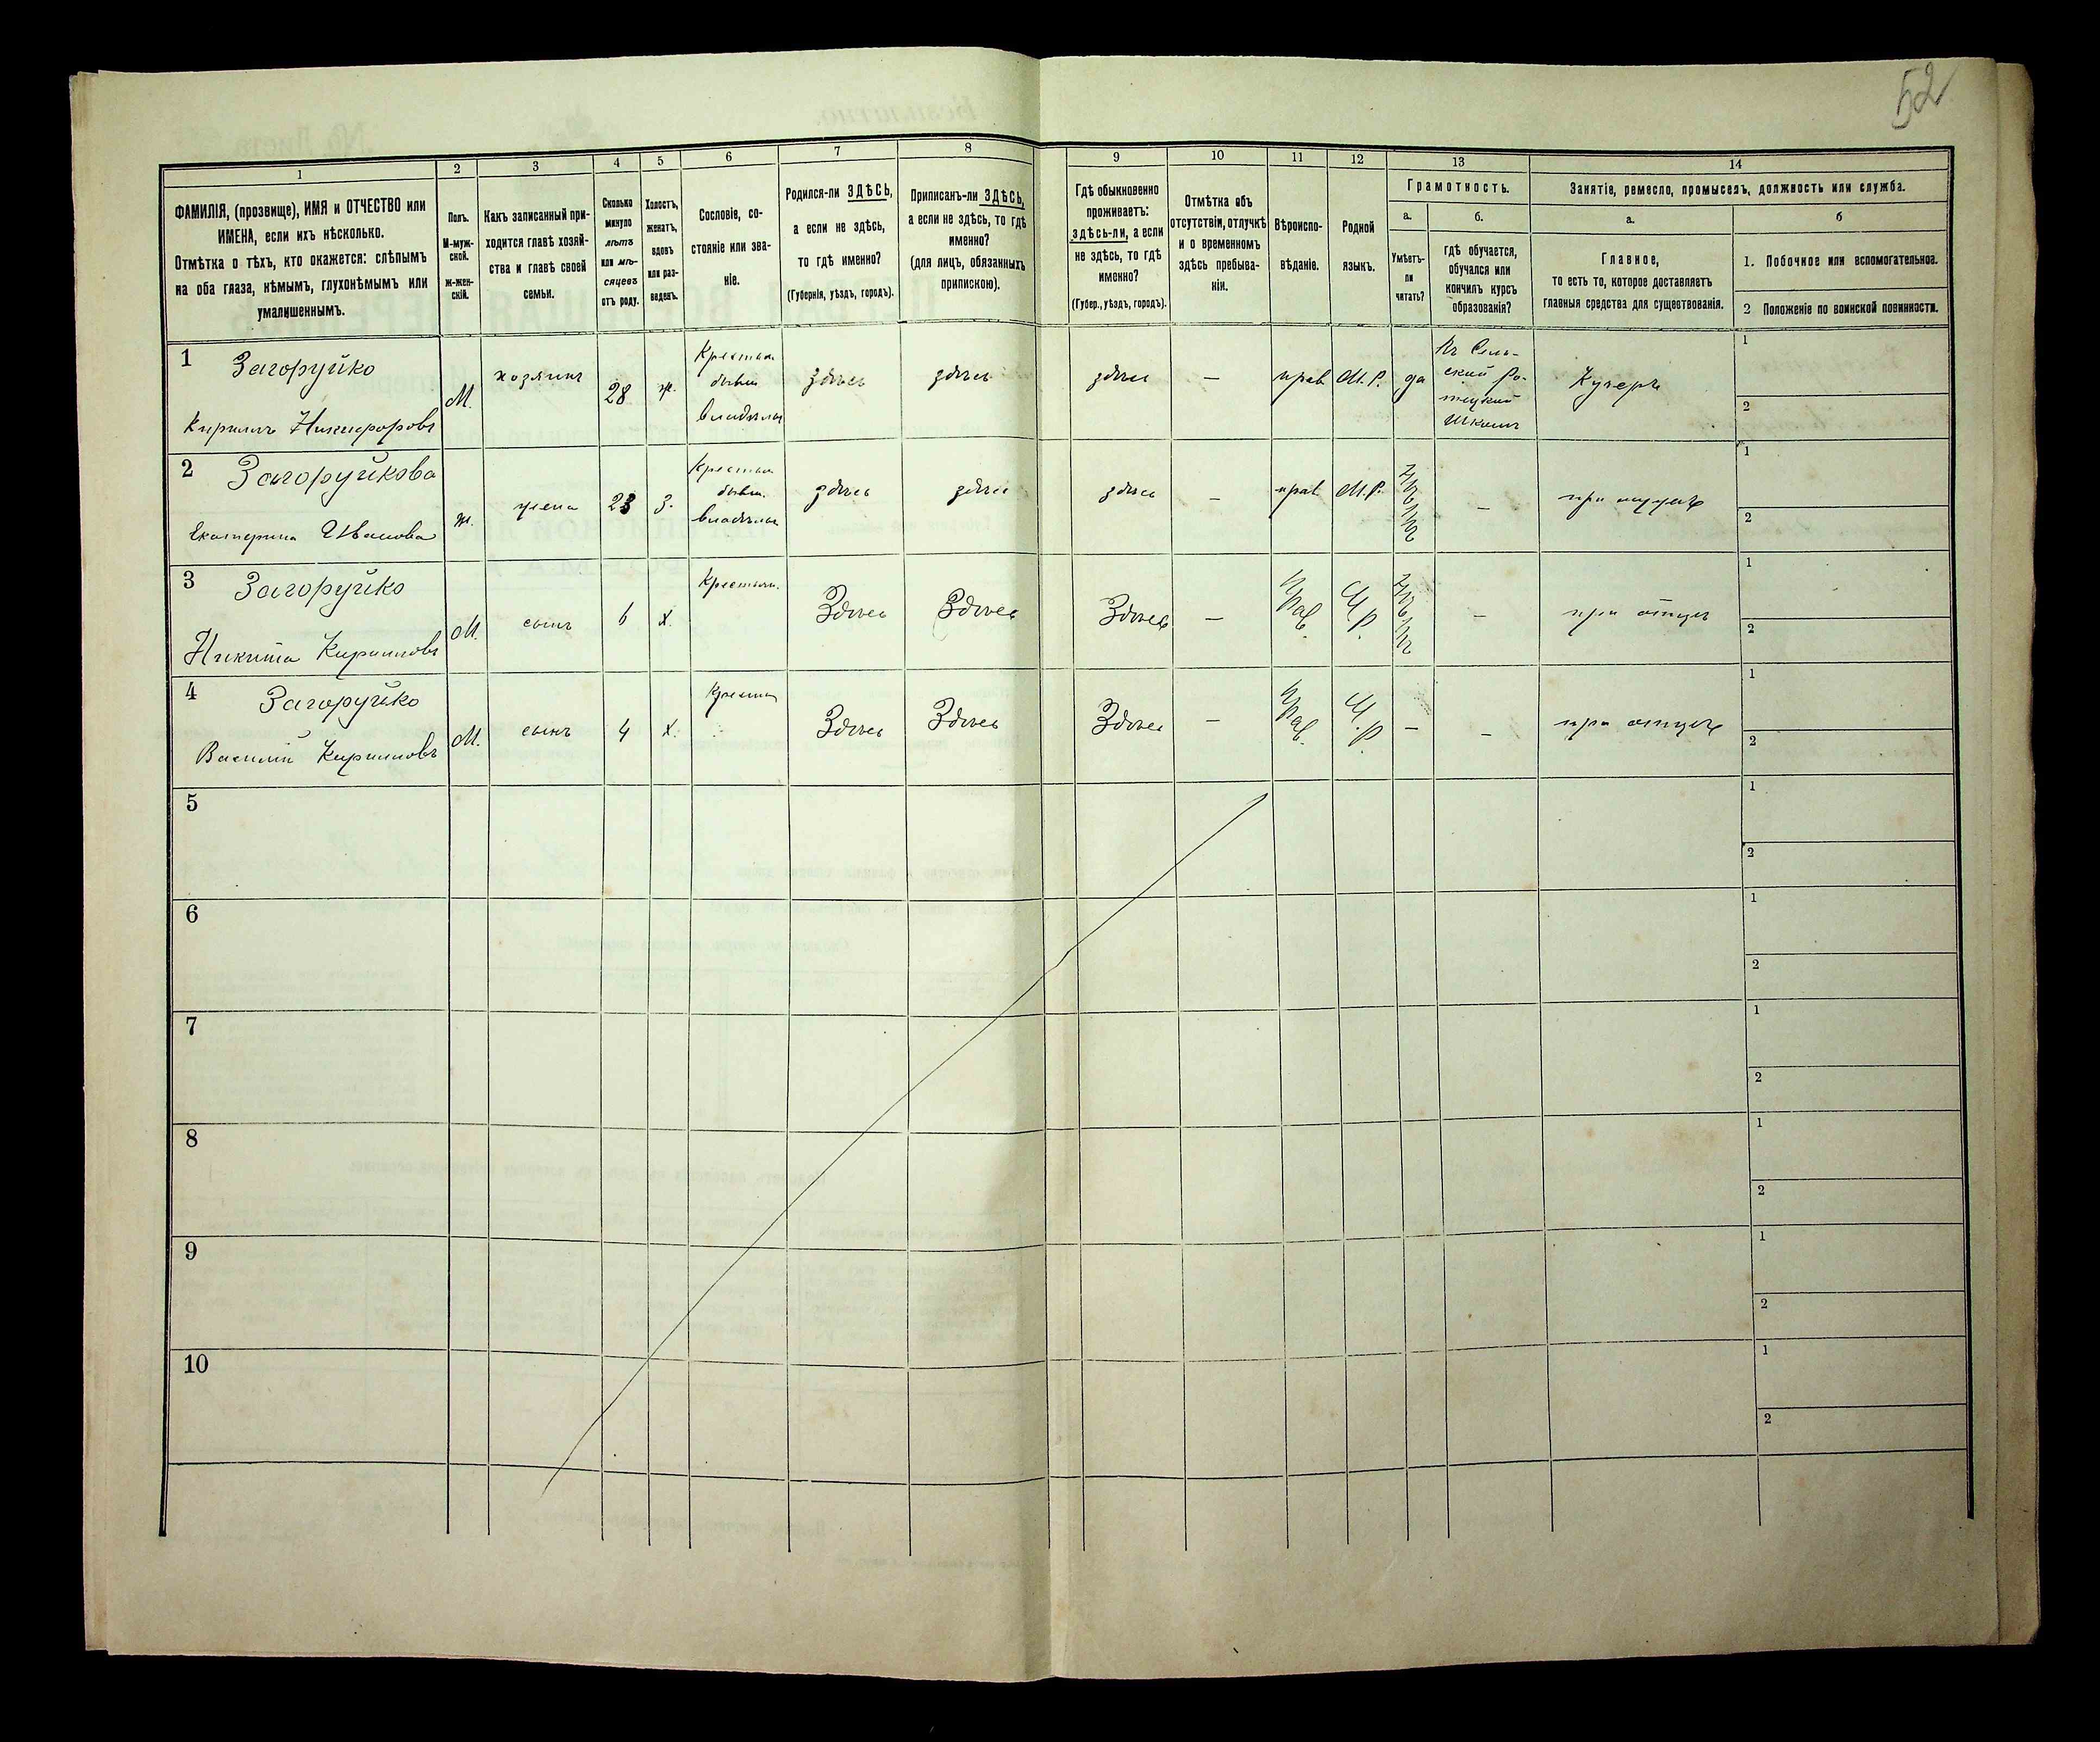 52
1
2
3
4
5
6
7
8
9
10
11
12
13
14
ФАМИЛІЯ, (прозвище), ИМЯ и ОТЧЕСТВО или
ИМЕНА, если ихъ нѣсколько.
Отмѣтка о тѣхъ, кто окажется: слѣпымъ
на оба глаза, нѣмымъ, глухонѣмымъ или
умалишеннымъ.
Полъ.
М-муж-
ской.
Ж-жен-
скій.
Какъ записанный при-
ходится главѣ хозяй-
ства и главѣ своей
семьи.
Сколько
минуло
лѣтъ
или мѣ-
сяцевъ
отъ роду.
Холостъ,
женатъ,
вдовъ
или раз-
веденъ.
Сословіе, со-
стояніе или зва-
ніе.
Родился-ли ЗДѢСЬ,
а если не здѣсь,
то гдѣ именно?
(Губернія, уѣздъ, городъ).
Приписанъ-ли ЗДѢСЬ,
а если не здѣсь, то гдѣ
именно?
(для лицъ, обязанныхъ
припискою).
Гдѣ обыкновенно
проживаетъ:
здѣсь-ли, а если
не здѣсь, то гдѣ
именно?
(Губер., уѣздъ, городъ).
Отмѣтка объ
отсутствіи, отлучкѣ
и о временномъ
здѣсь пребыва-
ніи.
Вѣроиспо-
вѣданіе.
Родной
языкъ.
Грамотность.
а.
Умѣетъ-
ли
читать?
б.
гдѣ обучается,
обучался или
кончилъ курсъ
образованія?
Занятіе, ремесло, промыселъ, должность или служба.
а.
Главное,
то есть то, которое доставляетъ
главныя средства для существованія.
б
1. Побочное или вспомогательное.
2 Положеніе по воинской повинности.
1 Загоруйко
Кириллъ Никифоровъ
М.
хозяинъ
28
ж.
Крестья
бывш
владѣльч
здѣсь
здѣсь
здѣсь
—
прав
М. Р.
да
Въ Сель-
ской
школѣ
Кучеръ
1
2
2 Загоруйкова
Екатерина Иванова
ж.
жена
23
з.
Крестья
бывш.
владѣльч
здѣсь
здѣсь
здѣсь
—
прав
М. Р.
нѣтъ
—
при мужѣ
1
2
3 Загоруйко
Никита Кирилловъ
М.
сынъ
6
х.
Крестьян.
Здѣсь
Здѣсь
Здѣсь
—
Прав.
М. Р.
нѣтъ
—
при отцѣ
1
2
4 Загоруйко
Василій Кирилловъ
М.
сынъ
4
х.
Крестья
Здѣсь
Здѣсь
Здѣсь
—
Прав.
М. Р.
—
—
при отцѣ
1
2
5
1
2
6
1
2
7
1
2
8
1
2
9
1
2
10
1
2